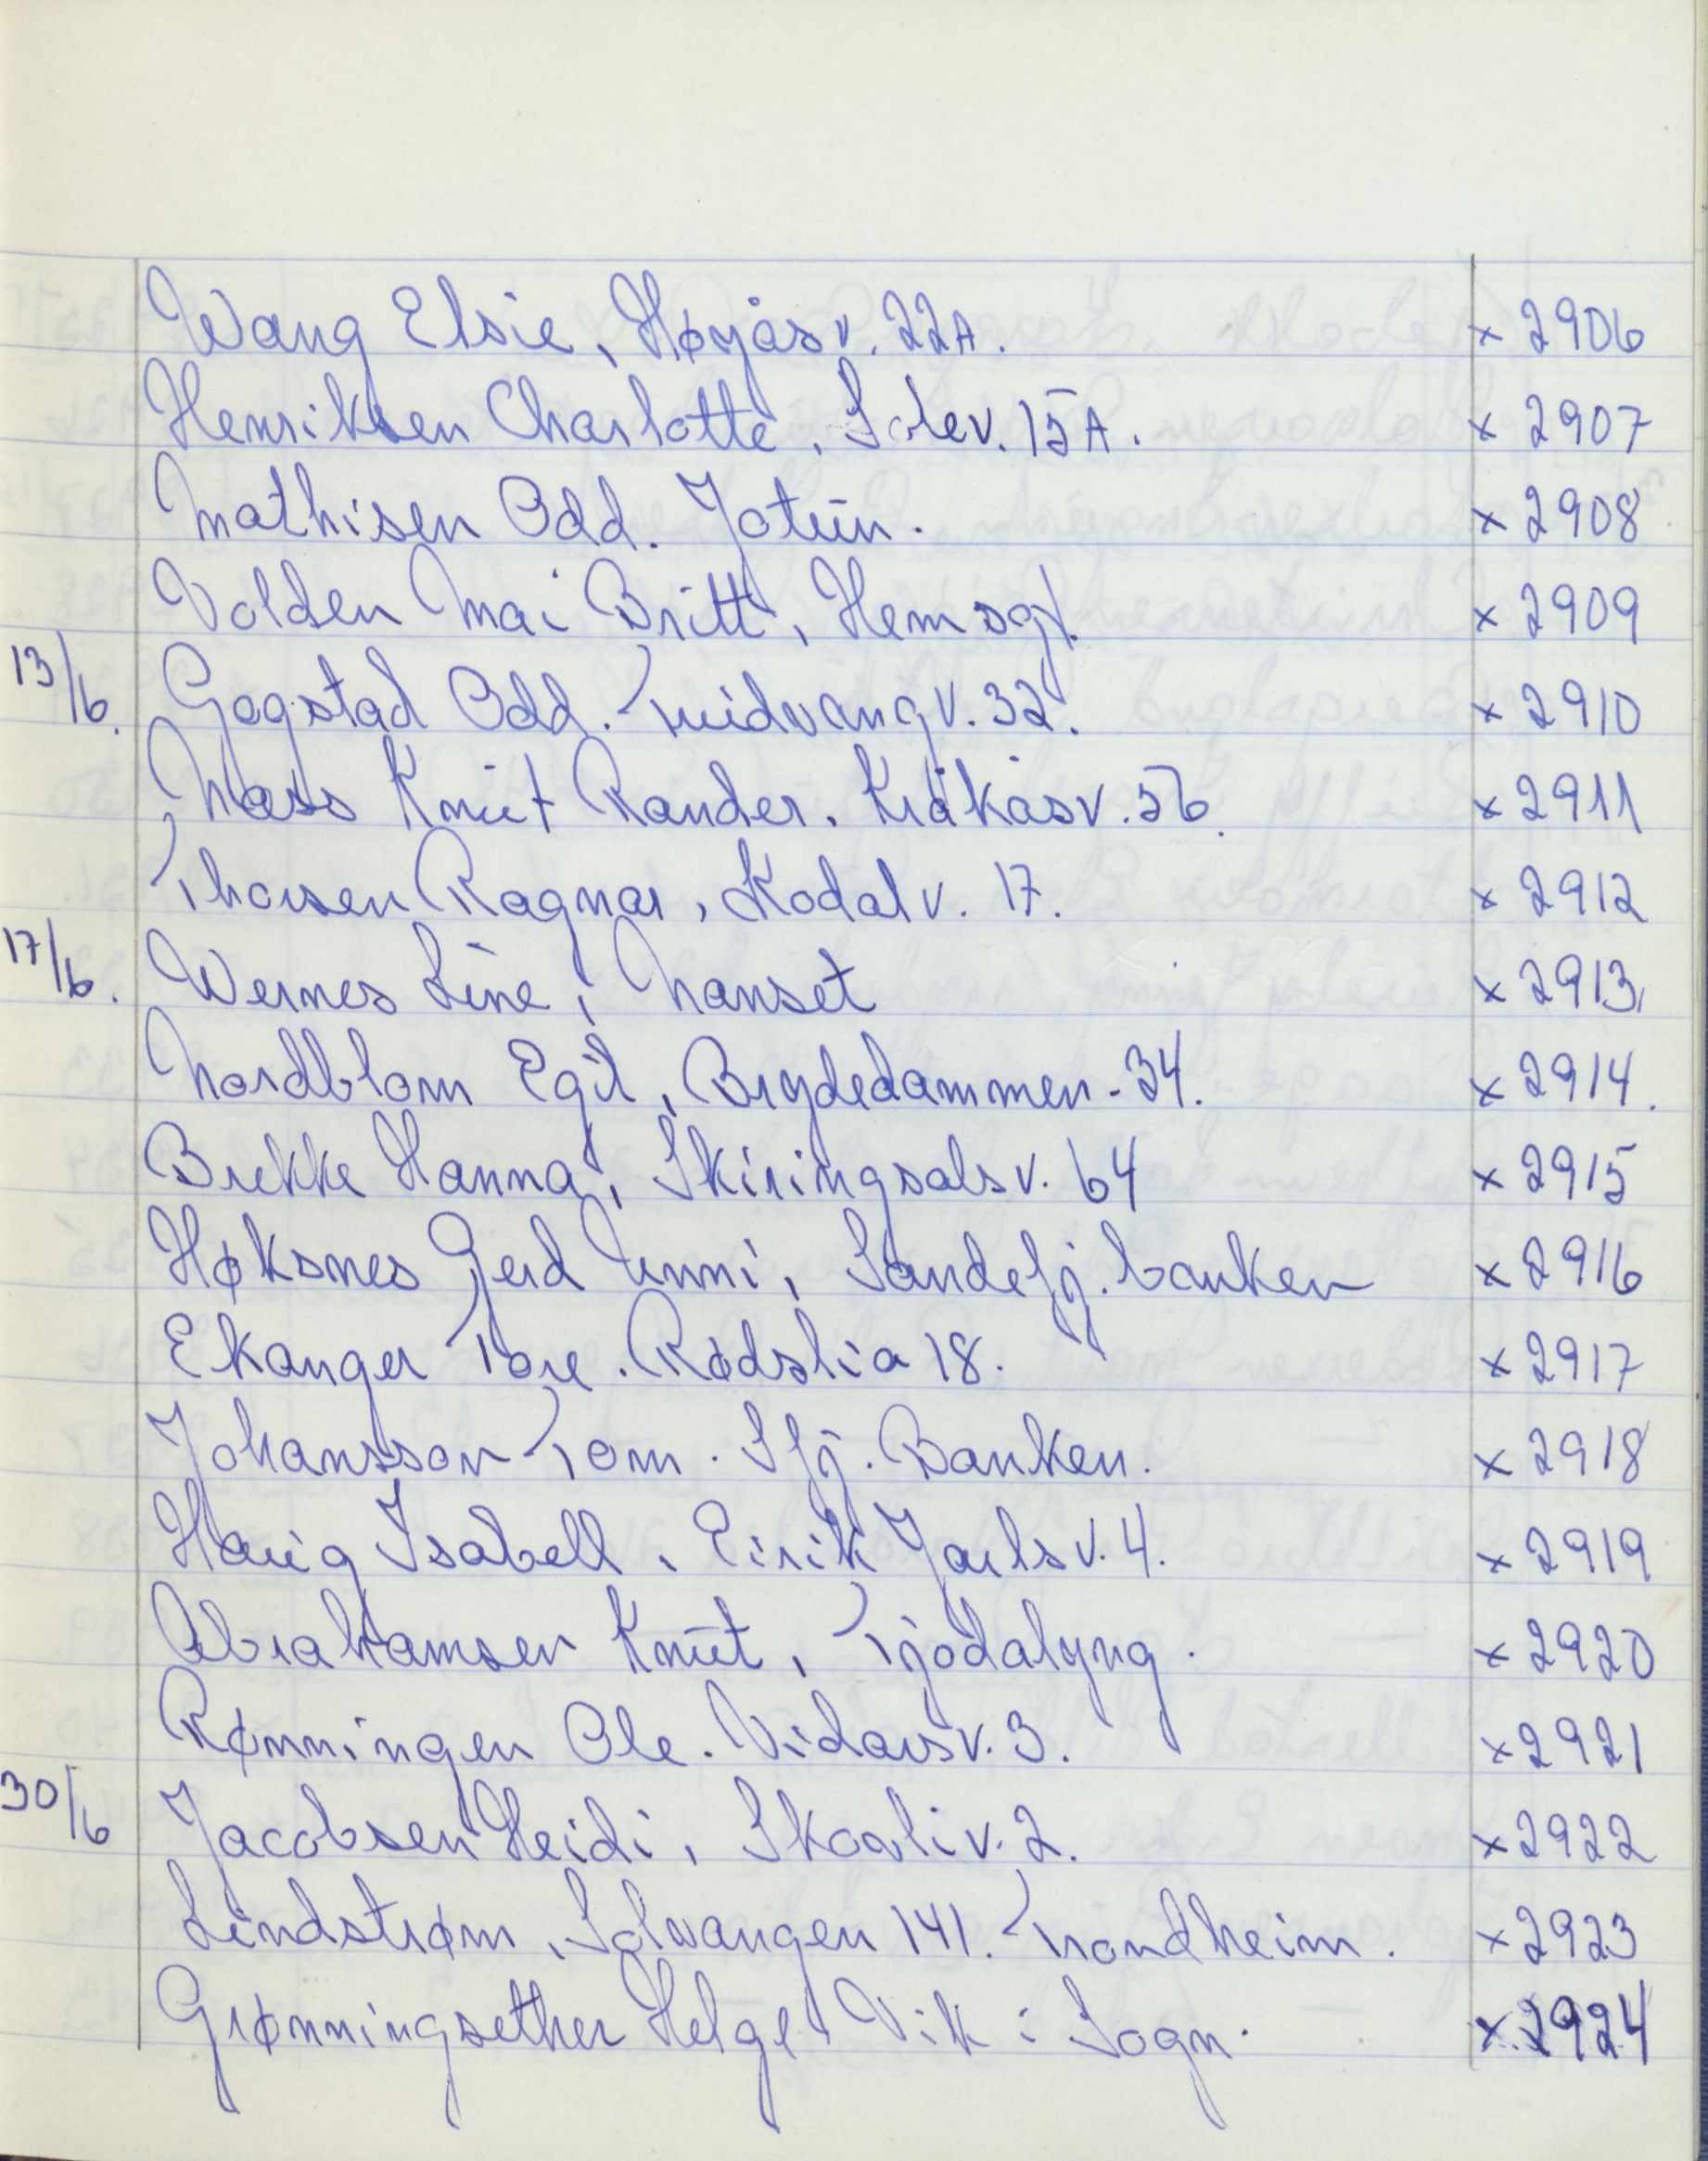 Wang Elsie, Høyåsv. 22A. x 2906
Henriksen Charlotte, Solev. 15A. x 2907
Mathisen Odd. Jotun. x 2908
Volden Mai Britt, Hemsgt. x 2909
13/6. Gogstad Odd. Trudvangv. 32. x 2910
Næss Knut Rander. Kråkåsv. 56. x 2911
Thorsen Ragnar, Kodalv. 17. x 2912
17/6. Wernes Line, Nanset x 2913
Nordblom Egil, Brydedammen - 34. x 2914.
Brekke Hanna, Skiringsalsv. 64 x 2915
Høksnes Gerd Unni, Sandefj. banken x 2916
Ekanger Tore. Rødslia 18. x 2917
Johansson Tom. Sfj. Banken. x 2918
Haug Isabell, Eirik Jarlsv. 4. x 2919
Abrahamsen Knut, Tjodalyng. x 2920
Rønningen Ole. Vidarsv. 3. x 2921
30/6 Jacobsen Heidi, Skogliv. 2. x 2922
Lindstrøm, Solvangen 141. Trondheim. x 2923
Grønningsether Helge Vik i Sogn. x 2924